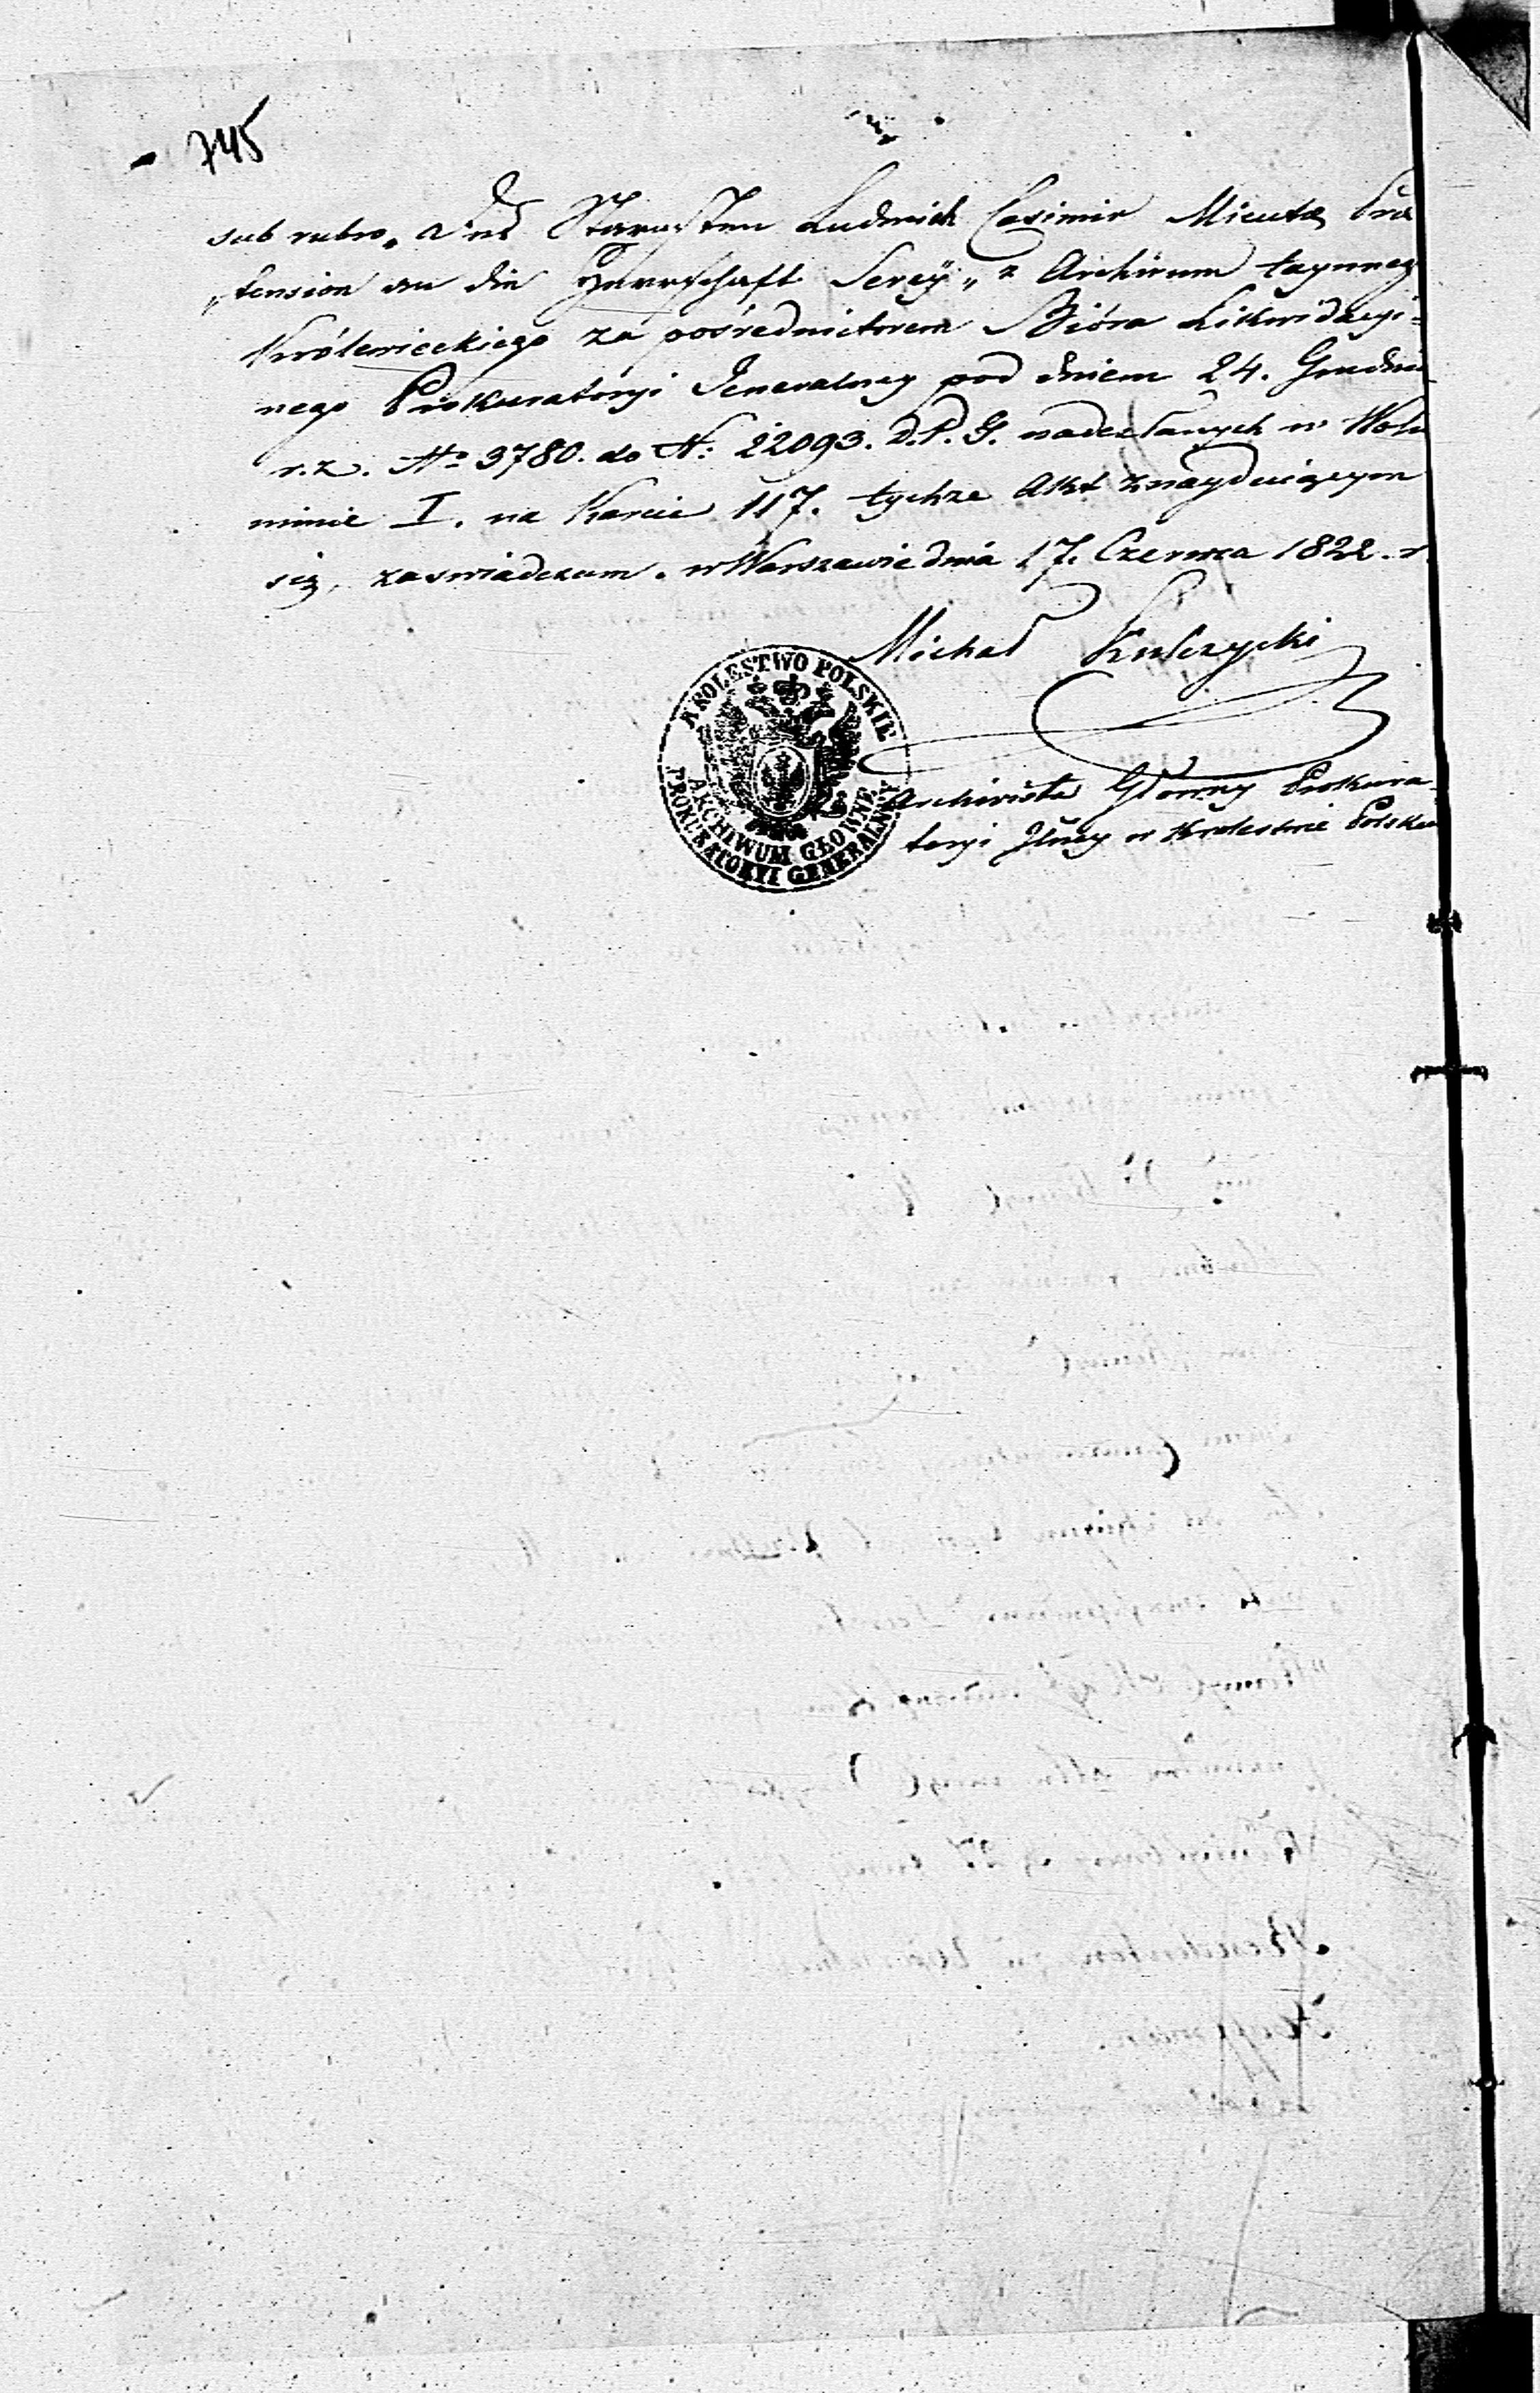 745
sub rubro „ des Starosten Ludwich Casimir Micuta Præ
„tension an die Herrschaft Serey „ z Archivum taynneg
Królewieckiego za pośrednictwem Bióra Likwidacyi-
nego Prokuratoryi Jeneralney pod dniem 24. Grudnia
r. z. No 3780. do N: 22093. D. P. G. nadesłanych w Wolu
minie I. na Karcie 117. tychże Akt znayduiącym
się, zaswiadczam. w Warszawie dnia 17. Czerwca 1822. r.
Michał Kulczycki
KROLESTWO POLSKIE
ARCHIWUM GŁOWNE
PROKURATORYI GENERALNEY
Archiwista Główny Prokura-
toryi Jlney w Krolestwie Polskie